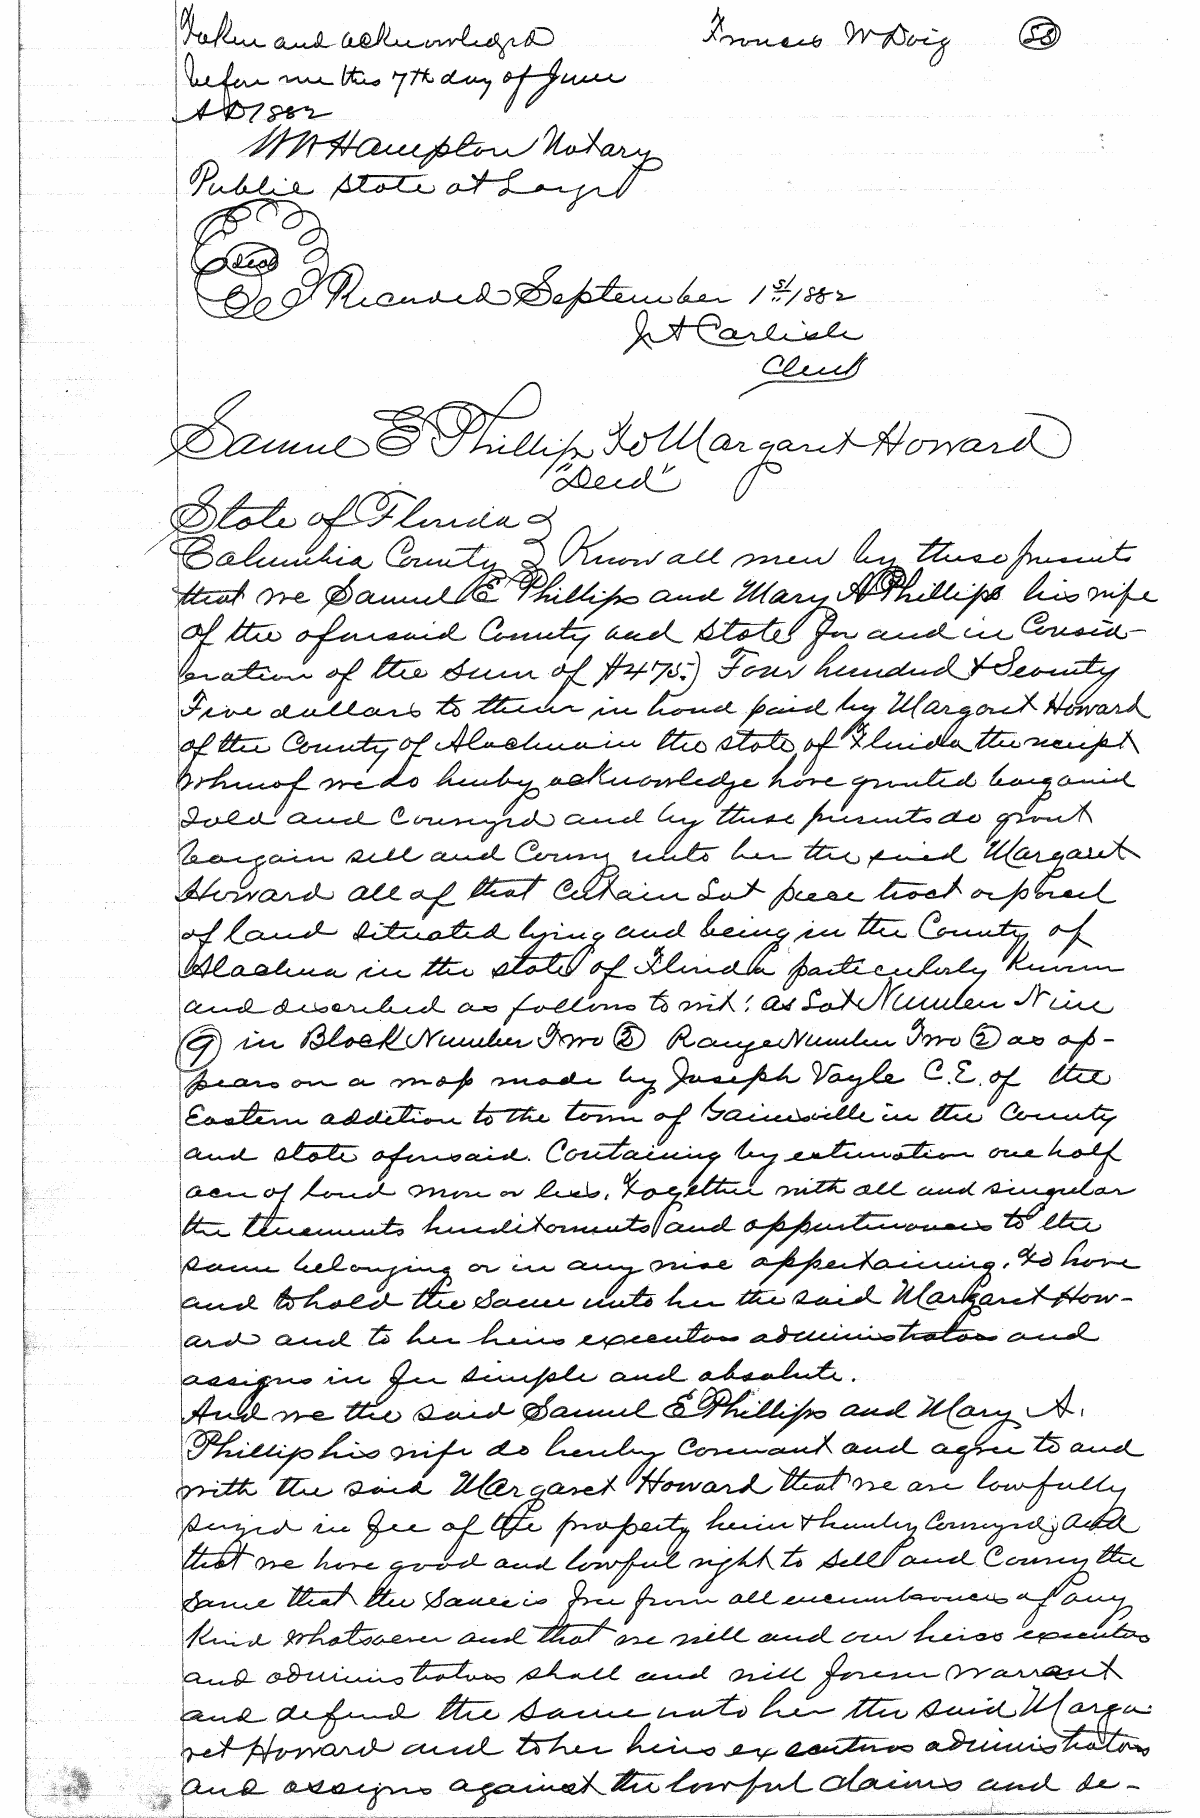 Taken and acknowledged Francis W Doig 58
before me this 7th day of June
A D 1882
W W Hampton Notary
Public State at Large
Seal
Recorded September 1st 1882
J A Carlisle
Clerk
Samuel E Phillips To Margaret Howard
"Deed"
State of Florida
Columbia County Know all men by these presents
that we Samuel E Phillips and Mary A Phillips his wife
of the aforesaid County and State for and in Consid-
eration of the sum of $475.) Four hundred & Seventy
Five dollars to them in hand paid by Margaret Howard
of the County of Alachua in the state of Florida the receipt
whereof we do hereby acknowledge have granted bargained
sold and conveyed and by these presents do grant
bargain sell and Convey unto her the said Margaret
Howard all of that certain Lot piece tract or parcel
of land situated lying and being in the County of
Alachua in the state of Florida particularly known
and described as follows to wit: as Lot Number Nine
(9) in Block Number Two (2) Range Number Two (2) as ap-
pears on a map made by Joseph Vogle C.E. of the
Eastern addition to the town of Gainesville in the County
and state aforesaid. Containing by estimation one half
acre of land more or less. Together with all and singular
the tenements hereditaments and appurtenances to the
same belonging or in any wise appertaining. To have
and to hold the same unto her the said Margaret How-
ard and to her heirs executors administrators and
assigns in fee simple and absolute.
And we the said Samuel E Phillips and Mary A.
Phillips his wife do hereby covenant and agree to and
with the said Margaret Howard that we are lawfully
seized in fee of the property herein & hereby Conveyed; and
that we have good and lawful right to sell and Convey the
same that the same is free from all encumbrances of any
kind whatsoever and that we will and our heirs executors
and administrators shall and will forever warrant
and defend the same unto her the said Marga-
ret Howard and to her heirs executors administrators
and assigns against the lawful claims and de-